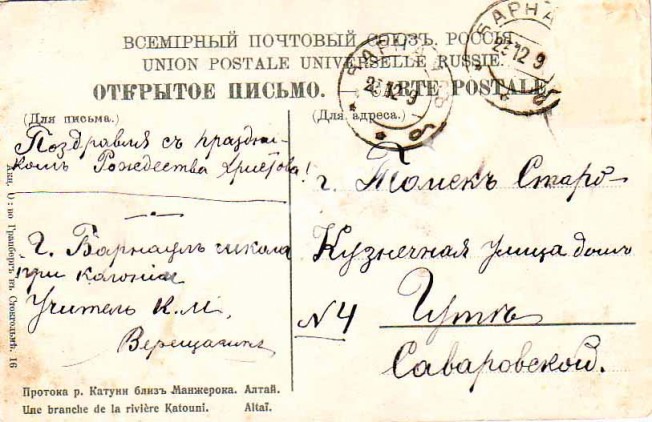 ВСЕМІРНЫЙ ПОЧТОВЫЙ СОЮЗЪ. РОССІЯ.
UNION POSTALE UNIVERSELLE RUSSIE.
ОТКРЫТОЕ ПИСЬМО. — CARTE POSTALE.
БАРНАУЛЪ
23 12 9
б
БАРНА
23 12 9
б
(Для письма.)
Поздравия съ праздни-
комъ Рожества Христова!
г. Барнаулъ школа
при колоніи
Учитель К. М.
Верещагинъ
(Для адреса.)
г. Томскъ Старо-
Кузнечная улица домъ
№ 4
Саваровской.
Акц. О-во Гранбергъ въ Стокгольмѣ. 16
Протока р. Катуни близъ Манжерока. Алтай.
Une branche de la rivière Katouni. Altaï.